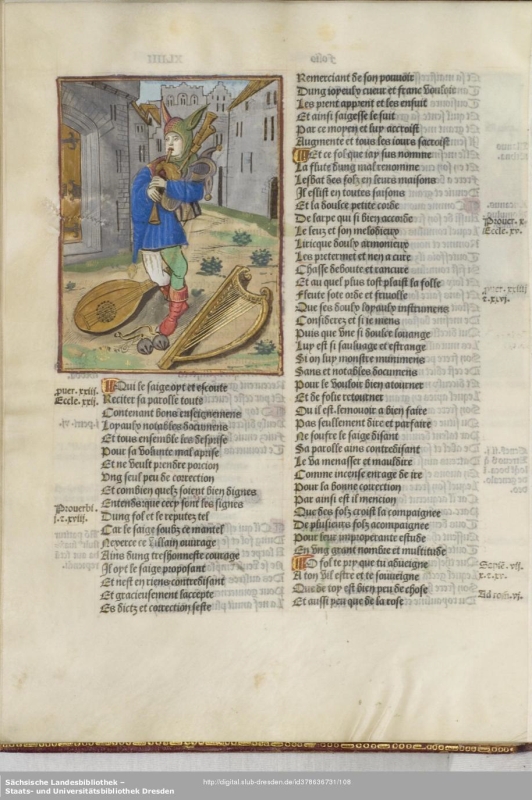 Qui le saige oyt et escoute
Reciter sa parolle toute
Contenant bons enseignemens
Loyaulx notables documens
Et tous ensemble les desprise
Pour sa voulunte mal aprise
Et ne veult prendre porcion
Ung seul peu de correction
Et combien quelz soient bien dignes
Entends que cecy sont les signes
Dung fol et le reputez tel
Car le saige soubz ce mantel
Neuvre ce villain ouvrage
Ains dung treshonneste courage
Il oyt le saige proposant
Et nest en riens contredisant
Et gracieusement laccepte
Es dictz et correction seste
puer. xxiii.
Eccle. xxii.
Prouerbi.
i. c. xviii.
Remerciant de son pouuoir
Dung ioyeulx cueur et franc vouloir
Les prent apprent et les ensuit
Et ainsi saigesse le suit
Par ce moyen et luy accroist
Augmente et tous les iours sacroist
Et ce fol que iay sus nomme
La fluste dung mal renomme
Lesbat des folz en leurs maisons
Il eslist en toutes saisons
Et la doulce petite corde
De larpe qui si bien accorde
Le leuz et son melodieux
Liricque doulx armonieux
Les pretermet et nen a cure
Chasse deboute et rancure
Et au quel plus tost plaist la folle
Fleute sote orde et friuolle
Que ses doulx loyaulx instrumens
Considerez et si ie mens
Puis que une si doulce louange
Luy est si sauluage et estrange
Si on luy monstre munimens
Sains et notables documens
Pour le vouloir bien atourner
Et de folie retourner
Ou il est lemouuoir a bien faire
Pas seullement dire et parfaire
Ne souffre le saige disant
Sa parolle ains contredisant
Le va menasser et mauldire
Comme incense enrage de ire
Pour la bonne correction
Par ainsi est il mencion
Que des folz croist la compaignee
De plusieurs folz acompaignee
Pour leur improperante estude
En ung grant nombre et multitude
O fol te pry que tu adueigne
A ton vil estre et te souuieigne
Que de toy est bien peu de chose
Et aussi peu que de la rose
Prouer. x.
Eccle. xv.
Sächsische Landesbibliothek –
Staats- und Universitätsbibliothek Dresden
http://digital.slub-dresden.de/id378636731/108